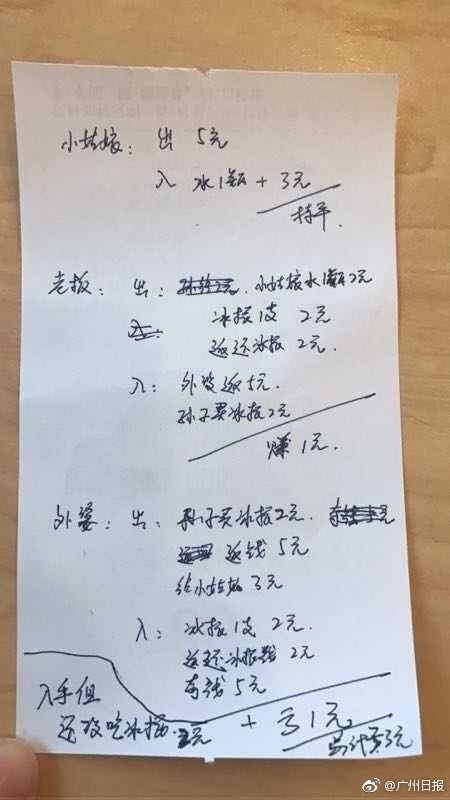 小姑娘：出 5元
入 水1瓶 + 3元
持平.
老板：出：小姑娘水1瓶2元
入：
冰搽1支 2元
返还冰搽 2元.
入：外婆返5元.
孙子买冰搽2元
赚1元.
外婆：出：孙子买冰搽2元.
返钱 5元
给小姑娘 3元
入：冰搽1支 2元
返还冰搽 2元
5元
入手但
还没吃冰搽 元
+ 亏1元
共计亏3元
@广州日报